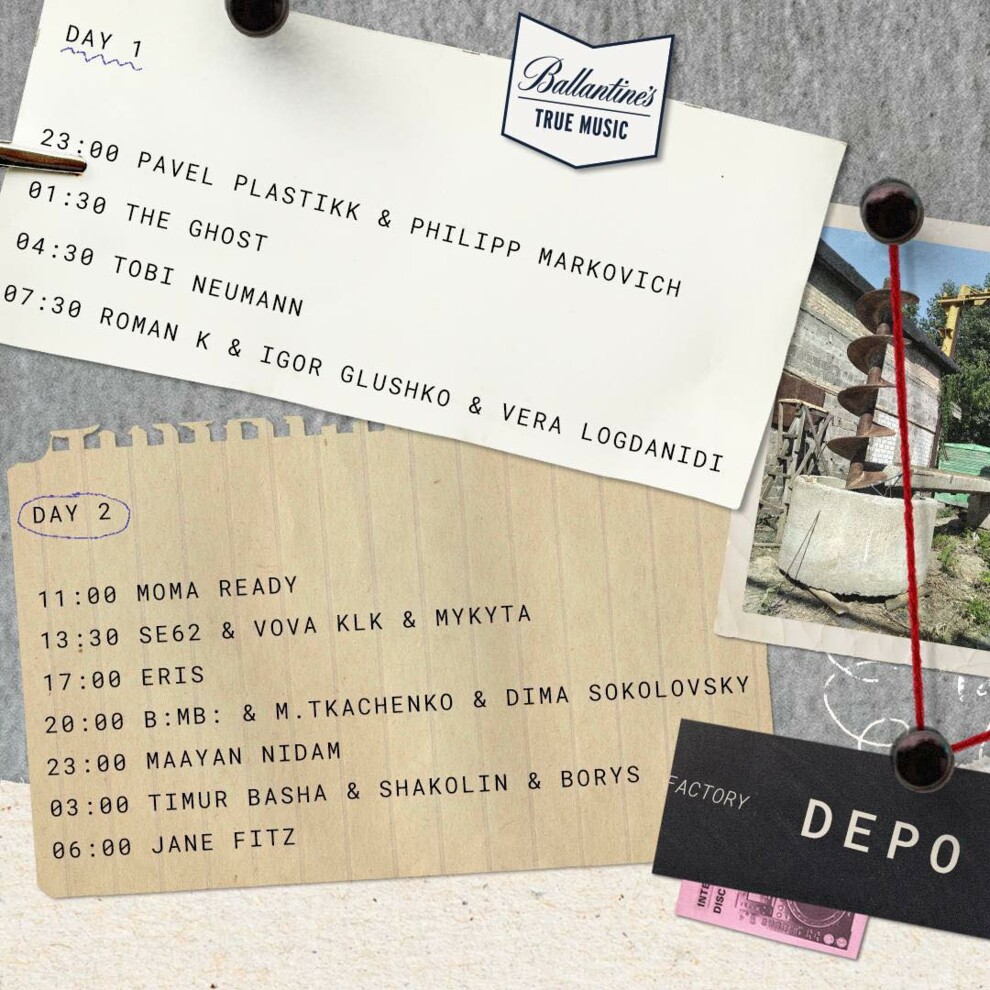 DAY 1
Ballantine's
TRUE MUSIC
23:00 PAVEL PLASTIKK & PHILIPP MARKOVICH
01:30 THE GHOST
04:30 TOBI NEUMANN
07:30 ROMAN K & IGOR GLUSHKO & VERA LOGDANIDI
DAY 2
11:00 MOMA READY
13:30 SE62 & VOVA KLK & MYKYTA
17:00 ERIS
20:00 B:MB: & M.TKACHENKO & DIMA SOKOLOVSKY
23:00 MAAYAN NIDAM
03:00 TIMUR BASHA & SHAKOLIN & BORYS
06:00 JANE FITZ
FACTORY
DEPO
INTE
DISC